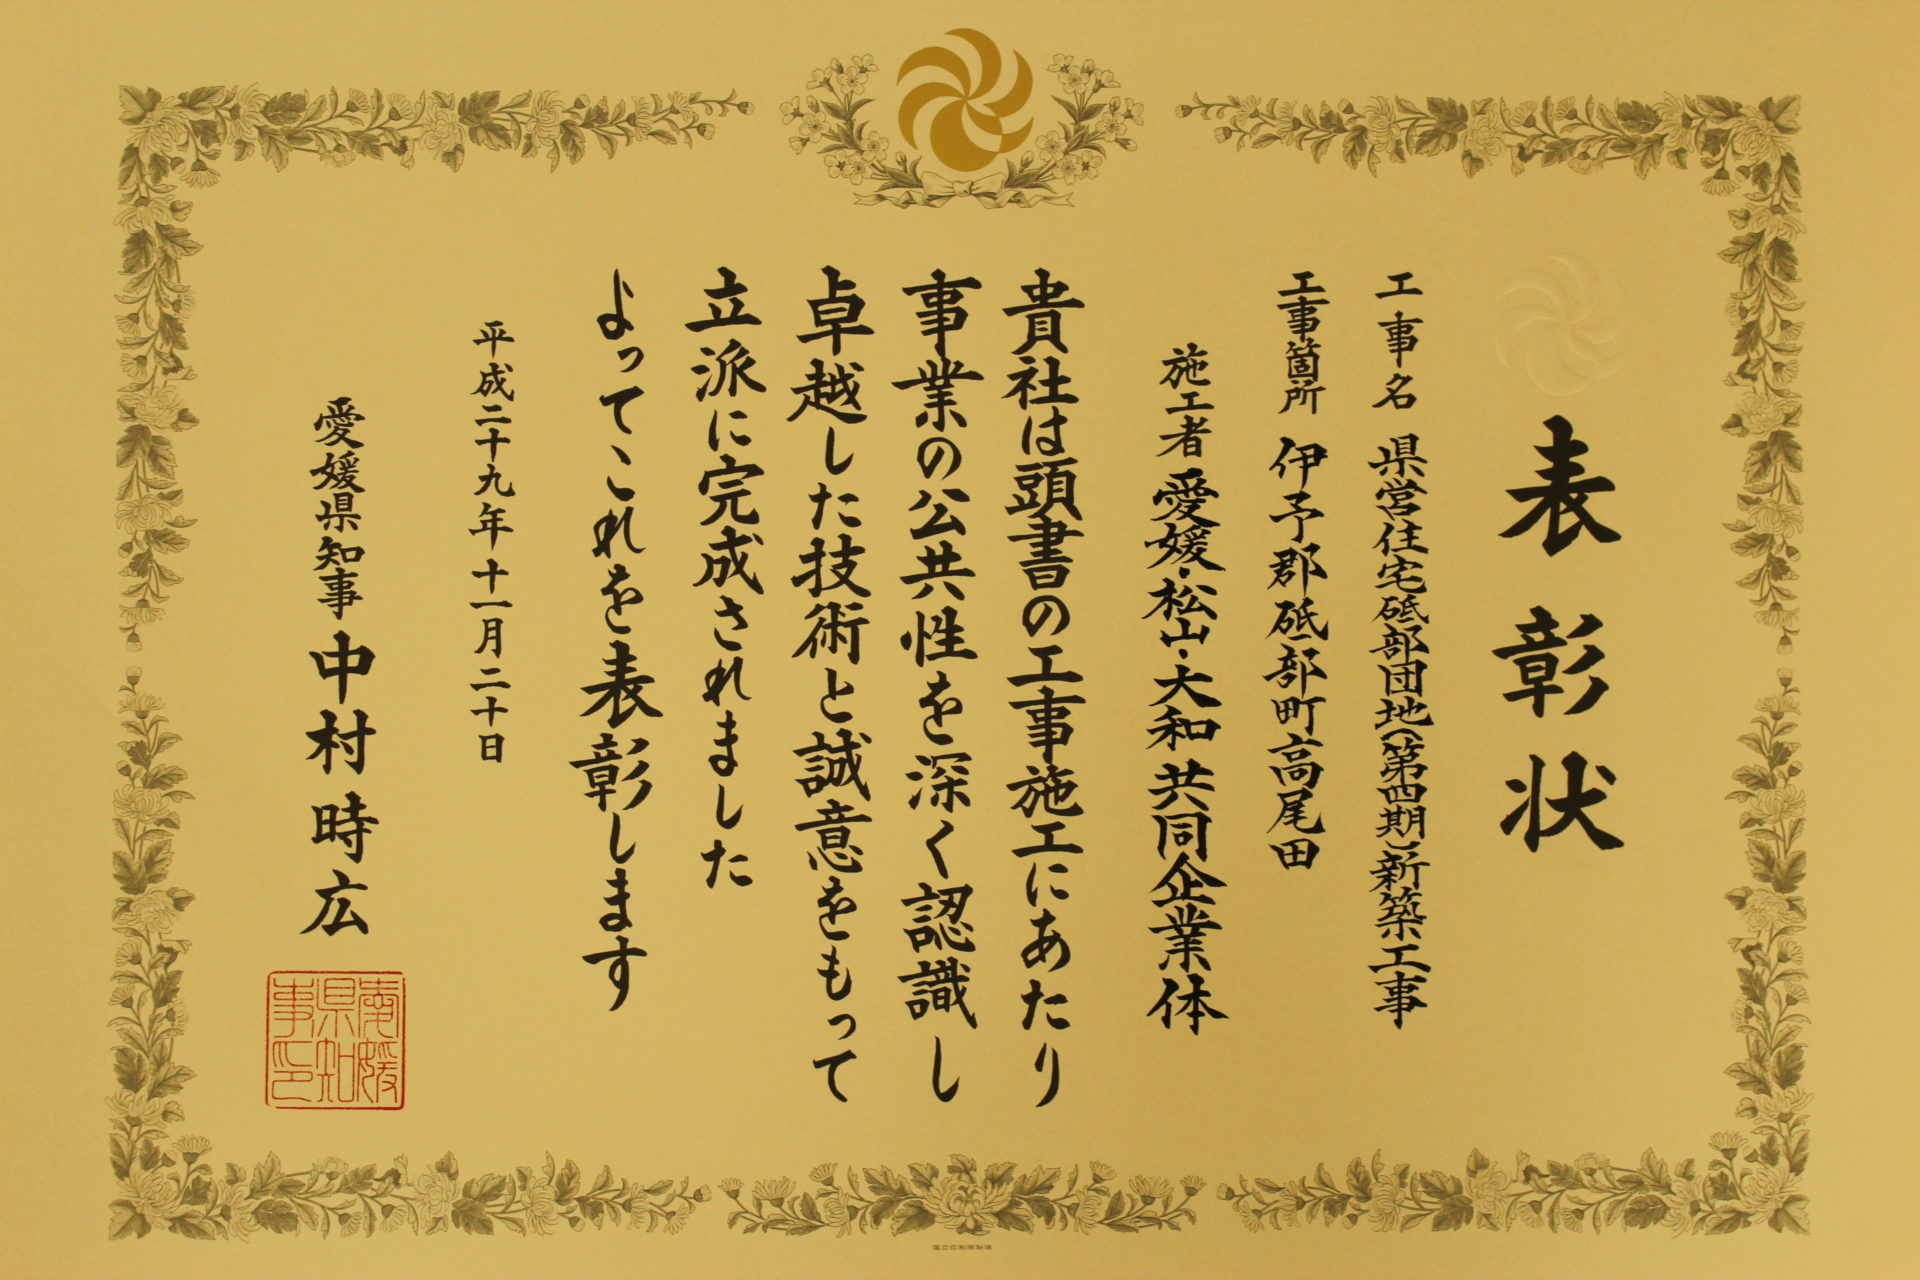 表彰状
工事名 県営住宅砥部団地(第四期)新築工事
工事箇所 伊予郡砥部町高尾田
施工者 愛媛・松山・大和共同企業体
貴社は頭書の工事施工にあたり
事業の公共性を深く認識し
卓越した技術と誠意をもって
立派に完成されました
よってこれを表彰します
平成二十九年十一月二十日
愛媛県知事 中村時広
愛媛県知事印
国立印刷局製造